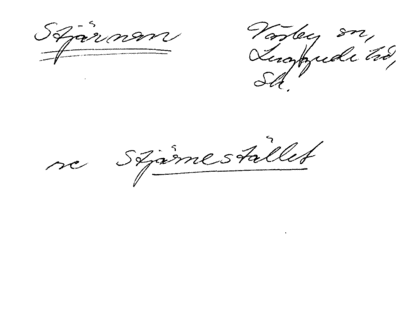 Stjärnan
Väsby sn,
Luggude hd,
Sk.
se Stjärnestället